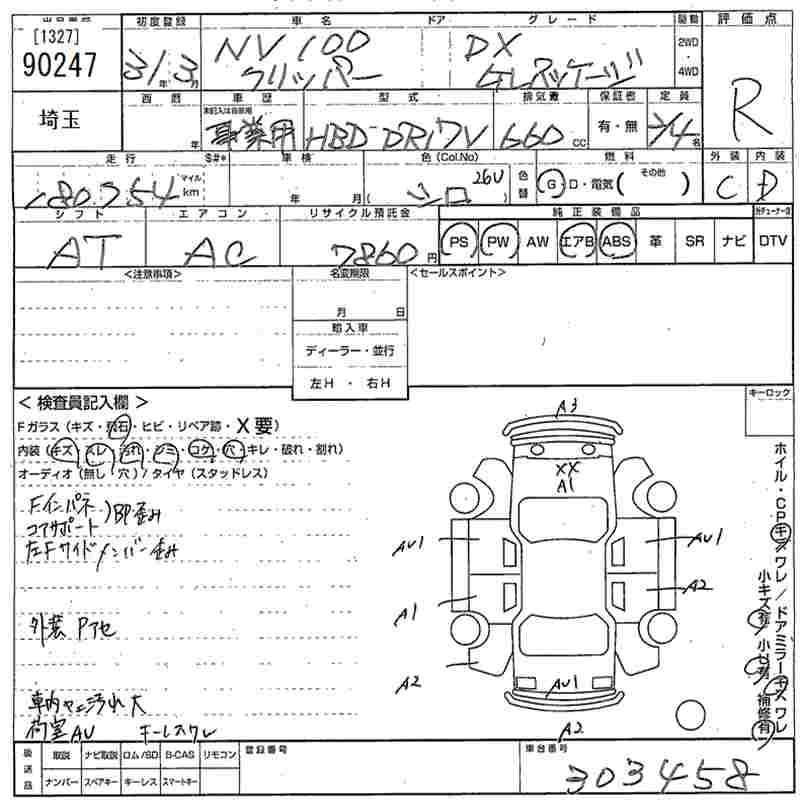 [1327]
90247
埼玉
初度登録
31年3月
車名
NV100
クリッパー
ドア
グレード
DX
GLパッケージ
駆動
2WD
・
4WD
評価点
R
西暦
年
車歴
未記入は自家用
事業用
型式
HBD-DR17V
排気量
660cc
保証書
有・無
定員
2/4名
走行
180,754
マイル
km
S#*
車検
年 月
色(Col.No)
( シロ 26U )
色替
燃料
G・D・電気( その他 )
外装
C
内装
D
シフト
AT
エアコン
AC
リサイクル預託金
7860円
純正装備品
PS PW AW エアB ABS 革 SR ナビ
DTV
<注意事項>
名変期限
月 日
輸入車
ディーラー・並行
左H・右H
<セールスポイント>
キーロック
<検査員記入欄>
Fガラス(キズ・飛石・ヒビ・リペア跡・X要)
内装(キズ・スレ・汚れ・シミ・コゲ・穴・キレ・破れ・割れ)
オーディオ(無し/穴)/タイヤ(スタッドレス)
Fインパネ
コアサポート)BP歪み
左Fサイドメンバー歪み
外装 Pアセ
車内ヤニ汚れ大
荷室AU キーレスワレ
A3
XX
A1
AU1
AU1
A1
A2
A2
AU1
A2
ホイル・CPキズワレ/ドアミラーキズワレ
小キズ有 小凹有 補修有
後送品
取説 ナビ取説 ロム/SD B-CAS リモコン
ナンバー スペアキー キーレス スマートキー
登録番号
車台番号
303458